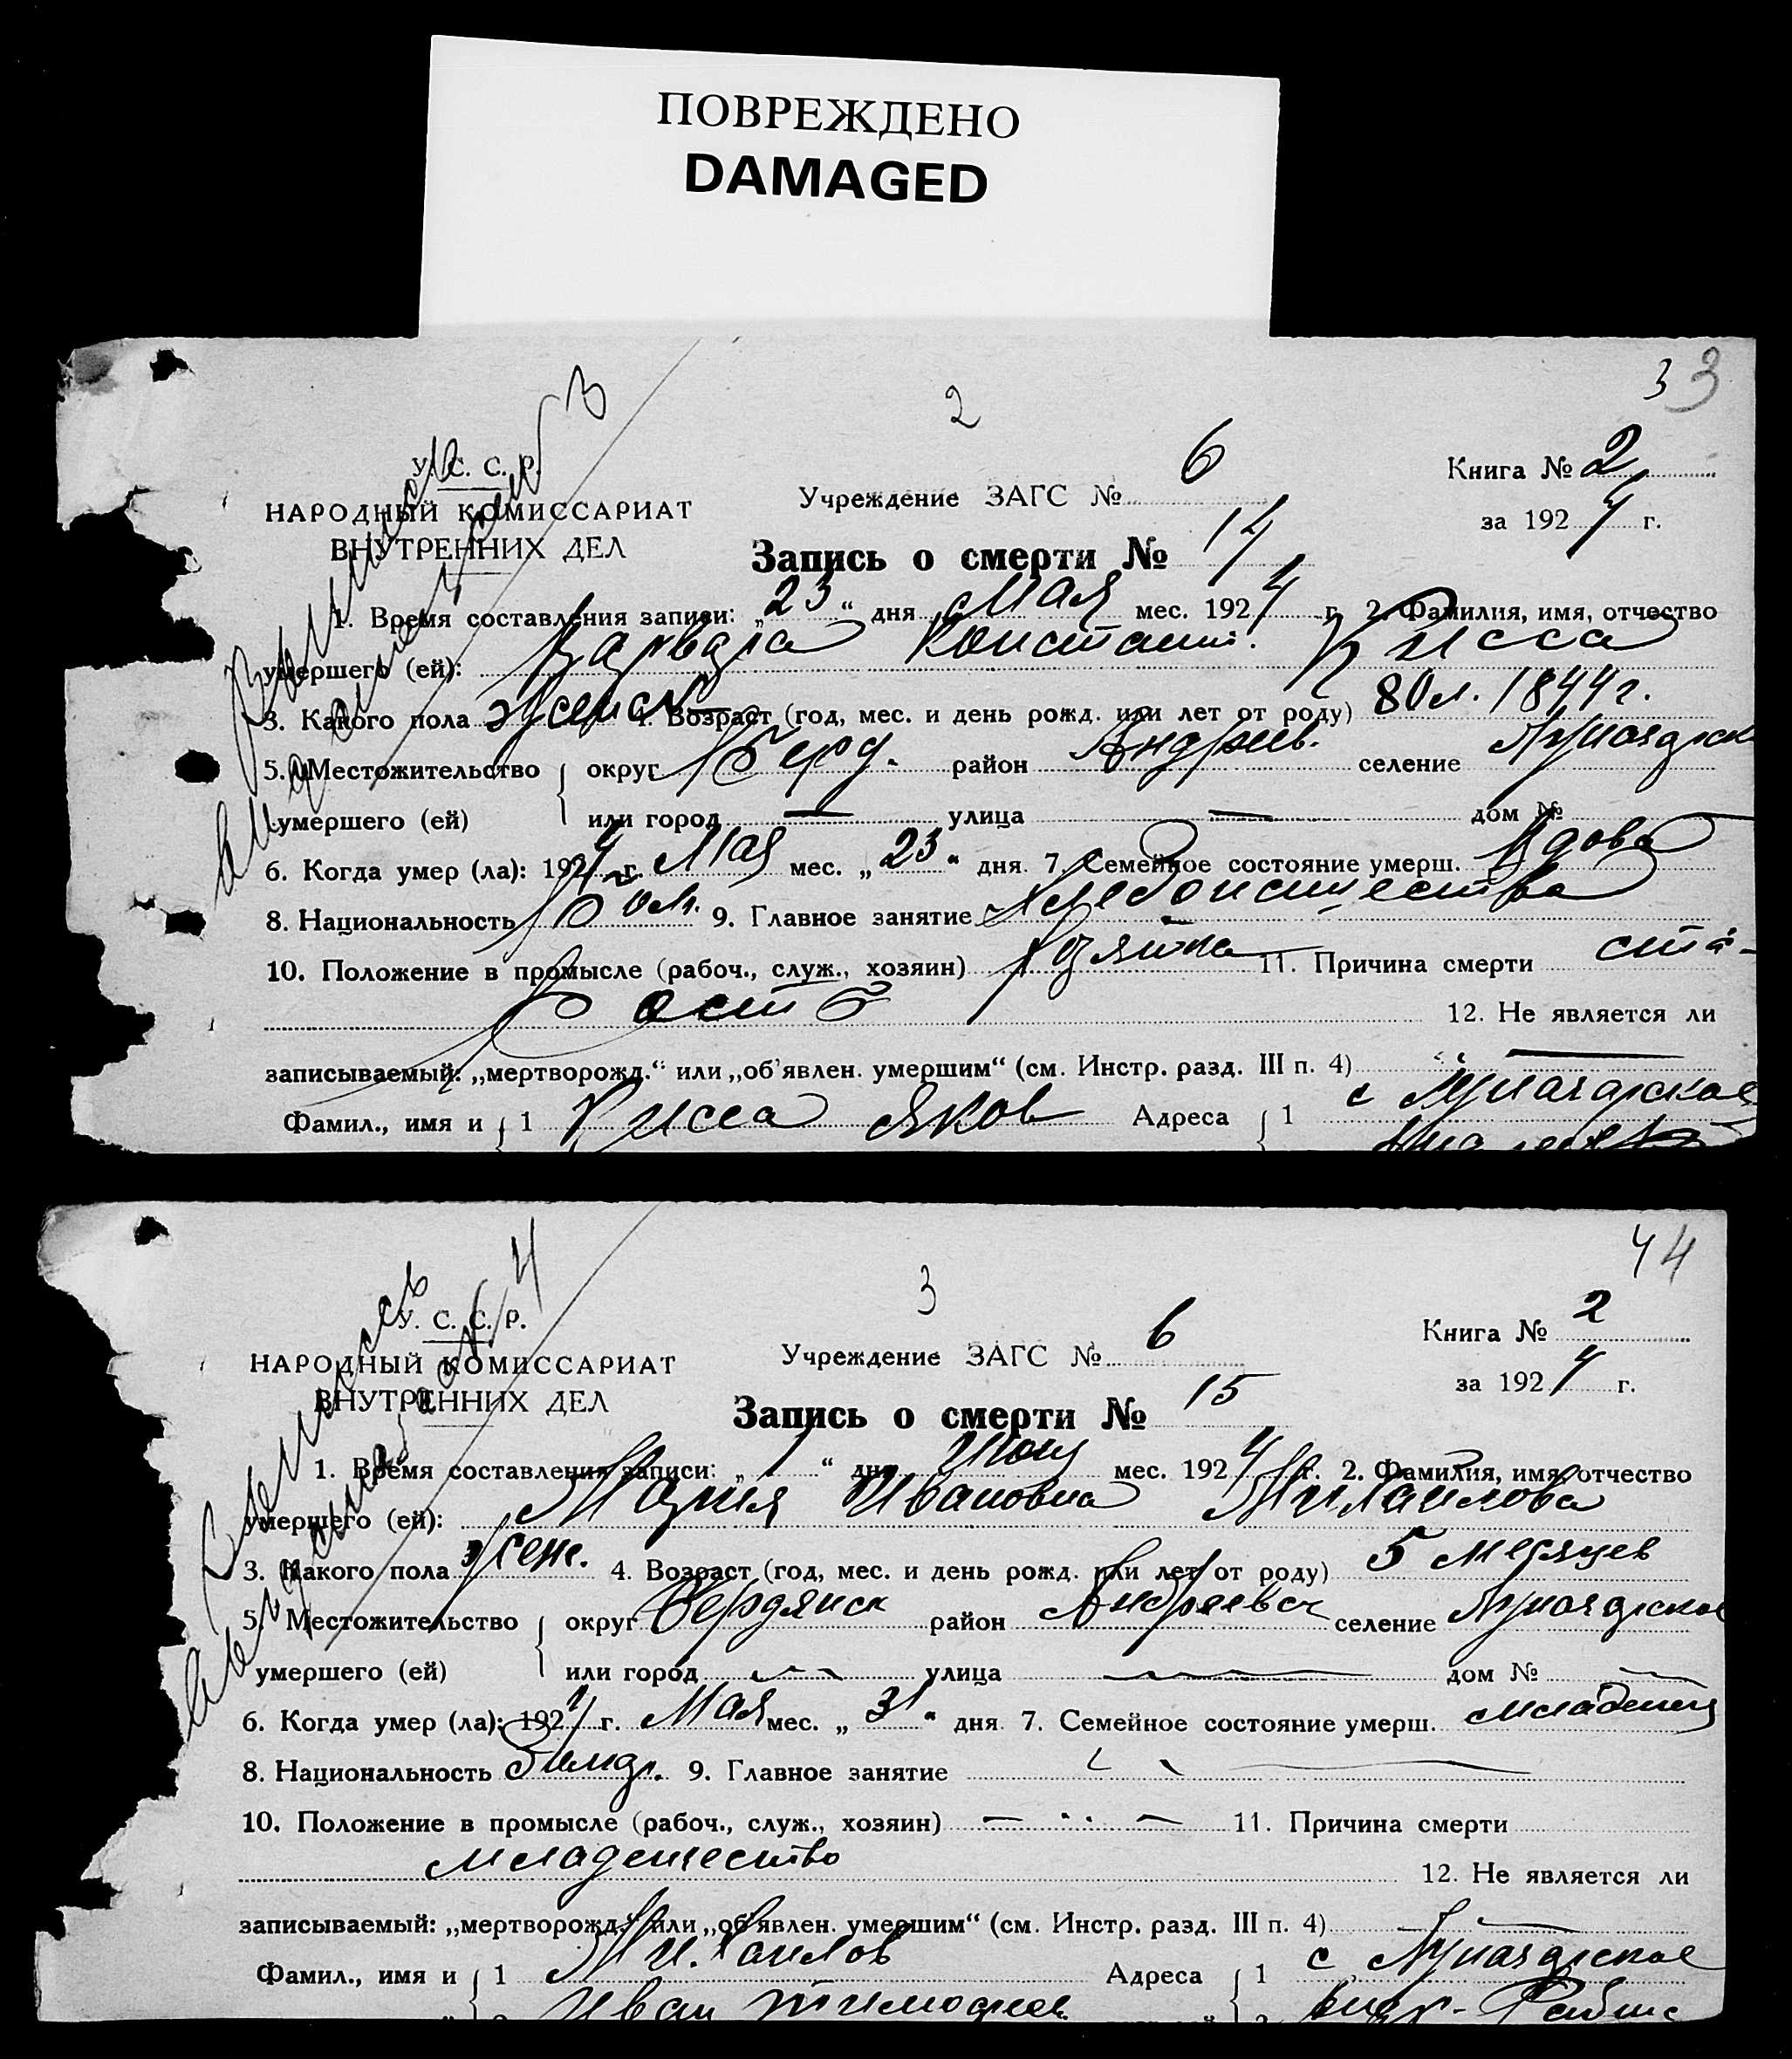 ПОВРЕЖДЕНО
DAMAGED
3 3
2
У. С. С. Р.
НАРОДНЫЙ КОМИССАРИАТ
ВНУТРЕННИХ ДЕЛ
Учреждение ЗАГС № 6
Книга № 2
за 1924 г.
Запись о смерти № 14
1. Время составления записи: „23“ дня Мая мес. 1924 г. 2. Фамилия, имя, отчество
умершего (ей): Варвара Констант. Кисса
3. Какого пола женск 4. Возраст (год, мес. и день рожд. или лет от роду) 80 л. 1844 г.
5. Местожительство округ Берд. район Андреев. селение
умершего (ей) или город — улица — дом №
6. Когда умер (ла): 1924 г. Мая мес. „23“ дня. 7. Семейное состояние умерш. Вдова
8. Национальность Бол. 9. Главное занятие Хлебопашества
10. Положение в промысле (рабоч., служ., хозяин) Хозяйка 11. Причина смерти ста-
рость 12. Не является ли
записываемый: „мертворожд.“ или „об'явлен. умершим“ (см. Инстр. разд. III п. 4) —
Фамил., имя и 1 Кисса Яков Адреса 1 с
4 4
3
У. С. С. Р.
НАРОДНЫЙ КОМИССАРИАТ
ВНУТРЕННИХ ДЕЛ
Выпись
Учреждение ЗАГС № 6
Книга № 2
за 1924 г.
Запись о смерти № 15
1. Время составления записи: „1“ дня Июня мес. 1924 г. 2. Фамилия, имя, отчество
умершего (ей): Мария Ивановна Михайлова
3. Какого пола жен. 4. Возраст (год, мес. и день рожд. или лет от роду) 5 месяцев
5. Местожительство округ Бердянск район Андреевск селение
умершего (ей) или город — улица — дом № —
6. Когда умер (ла): 1924 г. Мая мес. „31“ дня. 7. Семейное состояние умерш. младенец
8. Национальность 9. Главное занятие —
10. Положение в промысле (рабоч., служ., хозяин) — 11. Причина смерти
младенчество 12. Не является ли
записываемый: „мертворожд.“ или „об'явлен. умершим“ (см. Инстр. разд. III п. 4) —
Фамил., имя и 1 Михайлов Адреса 1 с
Иван